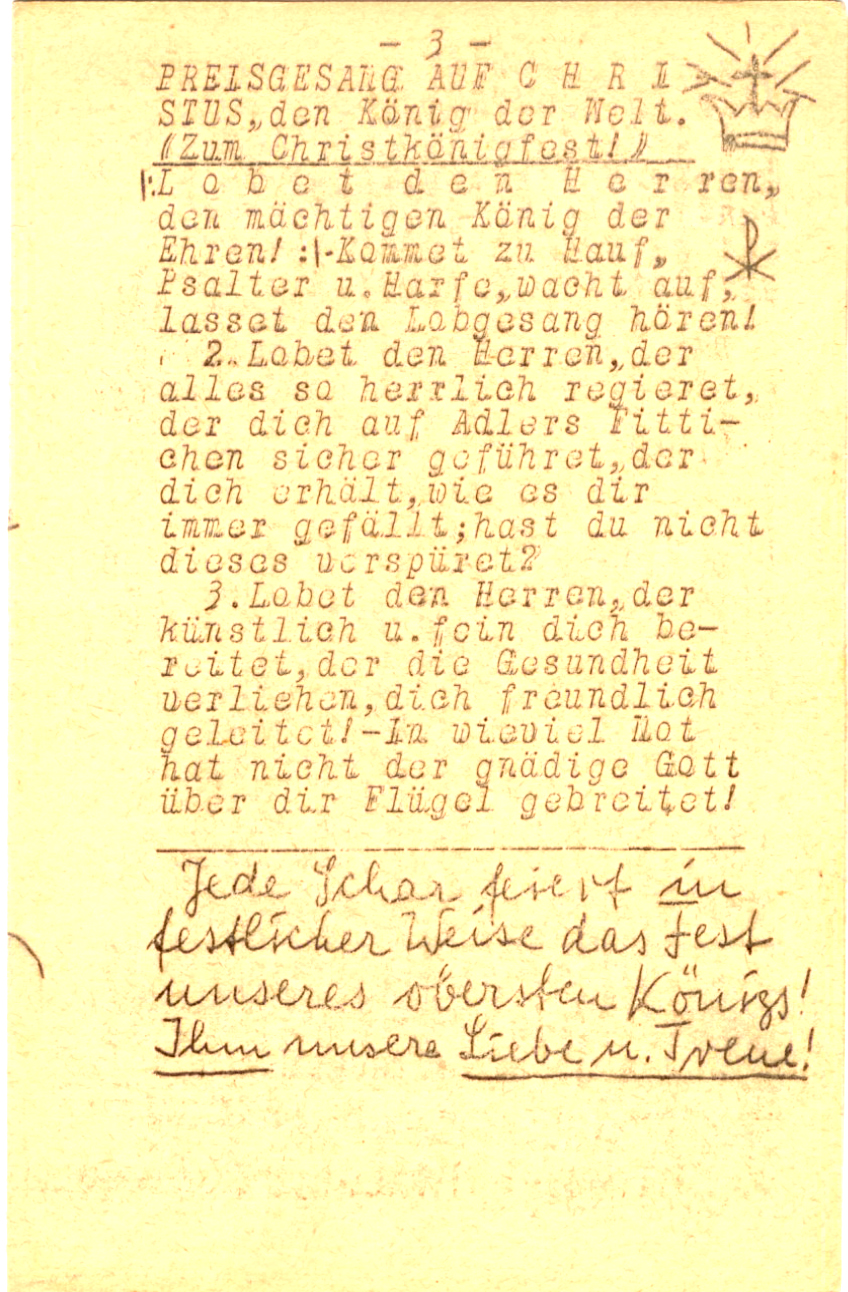 - 3 -
PREISGESANG AUF C H R I
STUS, den König der Welt.
(Zum Christkönigfest!)
|:L o b e t  d e n  H e r ren,
den mächtigen König der
Ehren! :|-Kommet zu Hauf,
Psalter u. Harfe, wacht auf,
lasset den Lobgesang hören!
2. Lobet den Herren, der
alles so herrlich regieret,
der dich auf Adlers Fitti-
chen sicher geführet, der
dich erhält, wie es dir
immer gefällt; hast du nicht
dieses verspüret?
3. Lobet den Herren, der
künstlich u. fein dich be-
reitet, der die Gesundheit
verliehen, dich freundlich
geleitet! -In wieviel Not
hat nicht der gnädige Gott
über dir Flügel gebreitet!
Jede Schar feiert in
festlicher Weise das Fest
unseres obersten Königs!
Ihm unsere Liebe u. Treue!